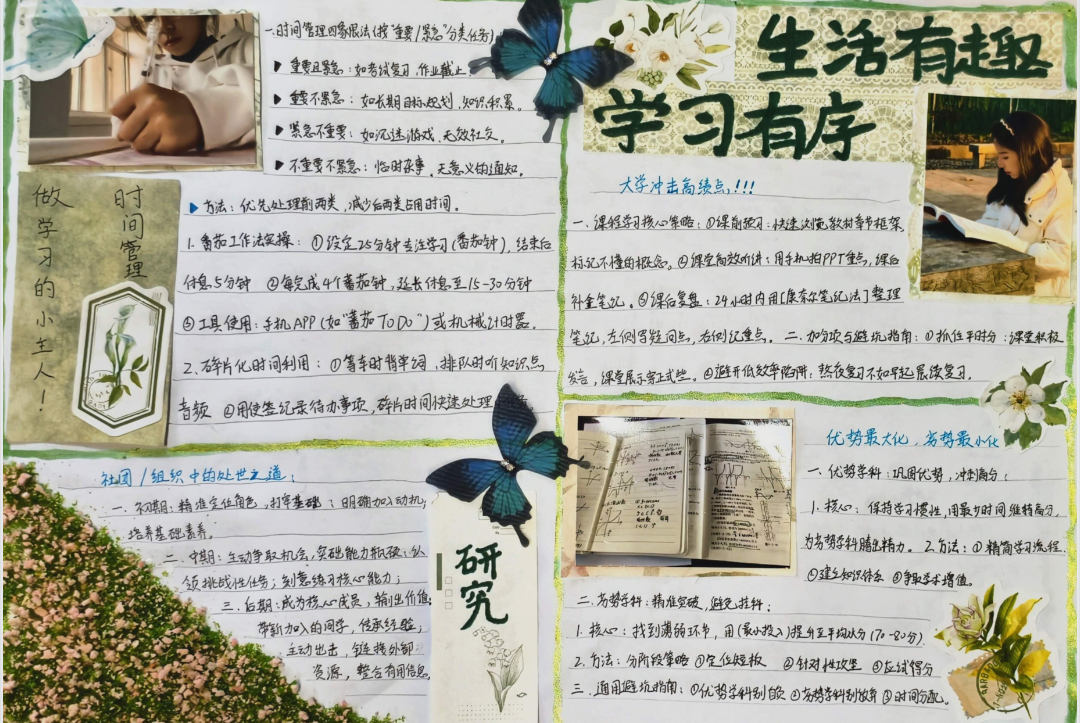 一.时间管理四象限法(按"重要/紧急"分类任务)
▶ 重要且紧急：如考试复习.作业截止。
▶ 重要不紧急：如长期目标规划，知识积累。
▶ 紧急不重要：如沉迷游戏，无效社交。
▶ 不重要不紧急：临时杂事，无意义的通知。
▶ 方法：优先处理前两类，减少后两类占用时间。
1.番茄工作法实操：①设定25分钟专注学习(番茄钟)，结束后
休息5分钟 ②每完成4个番茄钟，延长休息至15-30分钟
③工具使用：手机APP(如"番茄ToDo")或机械计时器。
2.碎片化时间利用：①等车时背单词，排队时听知识点
音频 ②用便签纪录待办事项，碎片时间快速处理
时间管理
做学习的小主人！
社团/组织中的处世之道：
一.初期：精准定位角色，打牢基础：明确加入动机；
培养基础素养。
二.中期：主动争取机会，突破能力瓶颈：认
领挑战性任务；刻意练习核心能力；
三.后期：成为核心成员，输出价值：
带新加入的同学，传承经验；
主动出击，链接外部
资源，整合有用信息，
研究
生活有趣
学习有序
大学冲击高绩点！！！
一.课程学习核心策略：①课前预习：快速浏览教材章节框架，
标记不懂的概念。②课堂高效听讲：用手机拍PPT重点，课后
补全笔记。③课后复盘：24小时内用[康奈尔笔记法]整理
笔记，左侧写疑问点，右侧记重点。二.加分项与避坑指南：①抓住平时分：课堂积极
发言，课堂展示穿正式些。②避开低效率陷阱：熬夜复习不如早起晨读复习。
优势最大化，劣势最小化
一.优势学科：巩固优势，冲刺高分；
1.核心：保持学习惯性，用最少时间维持高分，
为劣势学科腾出精力。2.方法：①精简学习流程.
②建立知识体系 ③争取学术增值。
二.劣势学科：精准突破，避免挂科；
1.核心：找到薄弱环节，用(最小投入)提升至平均分(70-80分)
2.方法：分阶段策略①定位短板 ②针对性攻坚 ③应试得分
三.通用避坑指南：①优势学科别自傲②劣势学科别放弃③时间分配。